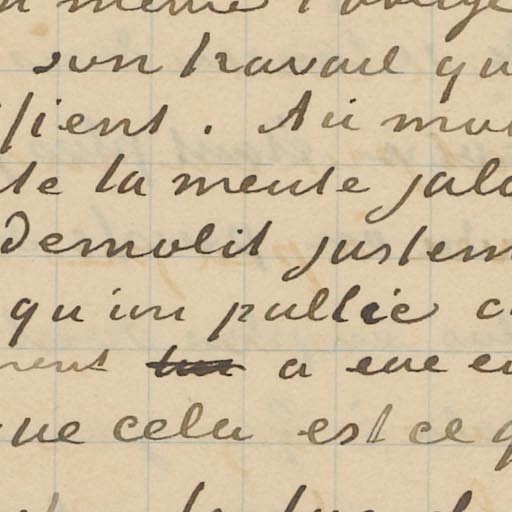 même l'oblige
son travail qu
fient. Au mo
te la meute jalo
demolit justem
qu'un public c
ment a eue e
ue cela est ce q